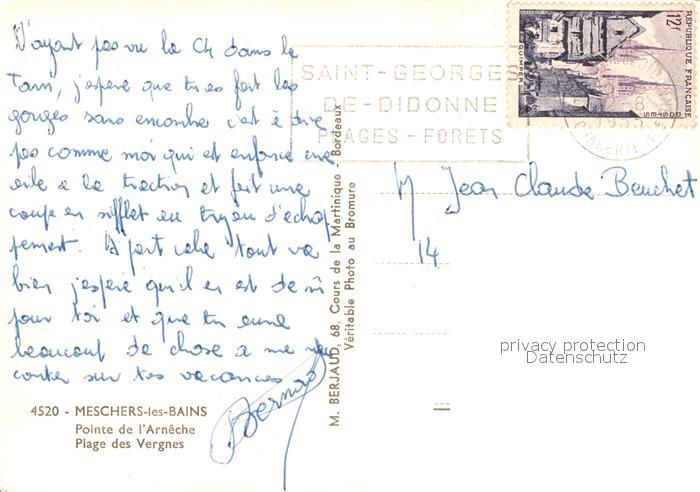 N'ayant pas vu la CH dans le
Tarn, j'espere que tu es fait les
gorges sans encombre c'est à dire
pas comme moi qui et enfonce une
aile a la traction et fait une
coupe en sifflet au tuyau d'echap
pement. A part cela tout va
bien j'espere qu'il en est de m
pour toi et que tu auras
beaucoup de chose a me ra
conter sur tes vacances
Bernard
4520 - MESCHERS-les-BAINS
Pointe de l'Arnêche
Plage des Vergnes
M. BERJAUD, 68, Cours de la Martinique - Bordeaux
Véritable Photo au Bromure
SAINT-GEORGES
DE-DIDONNE
PLAGES - FORETS
12f
REPUBLIQUE FRANÇAISE
QUIMPER
POSTES
M Jean Claude Beuchet
14
privacy protection
Datenschutz